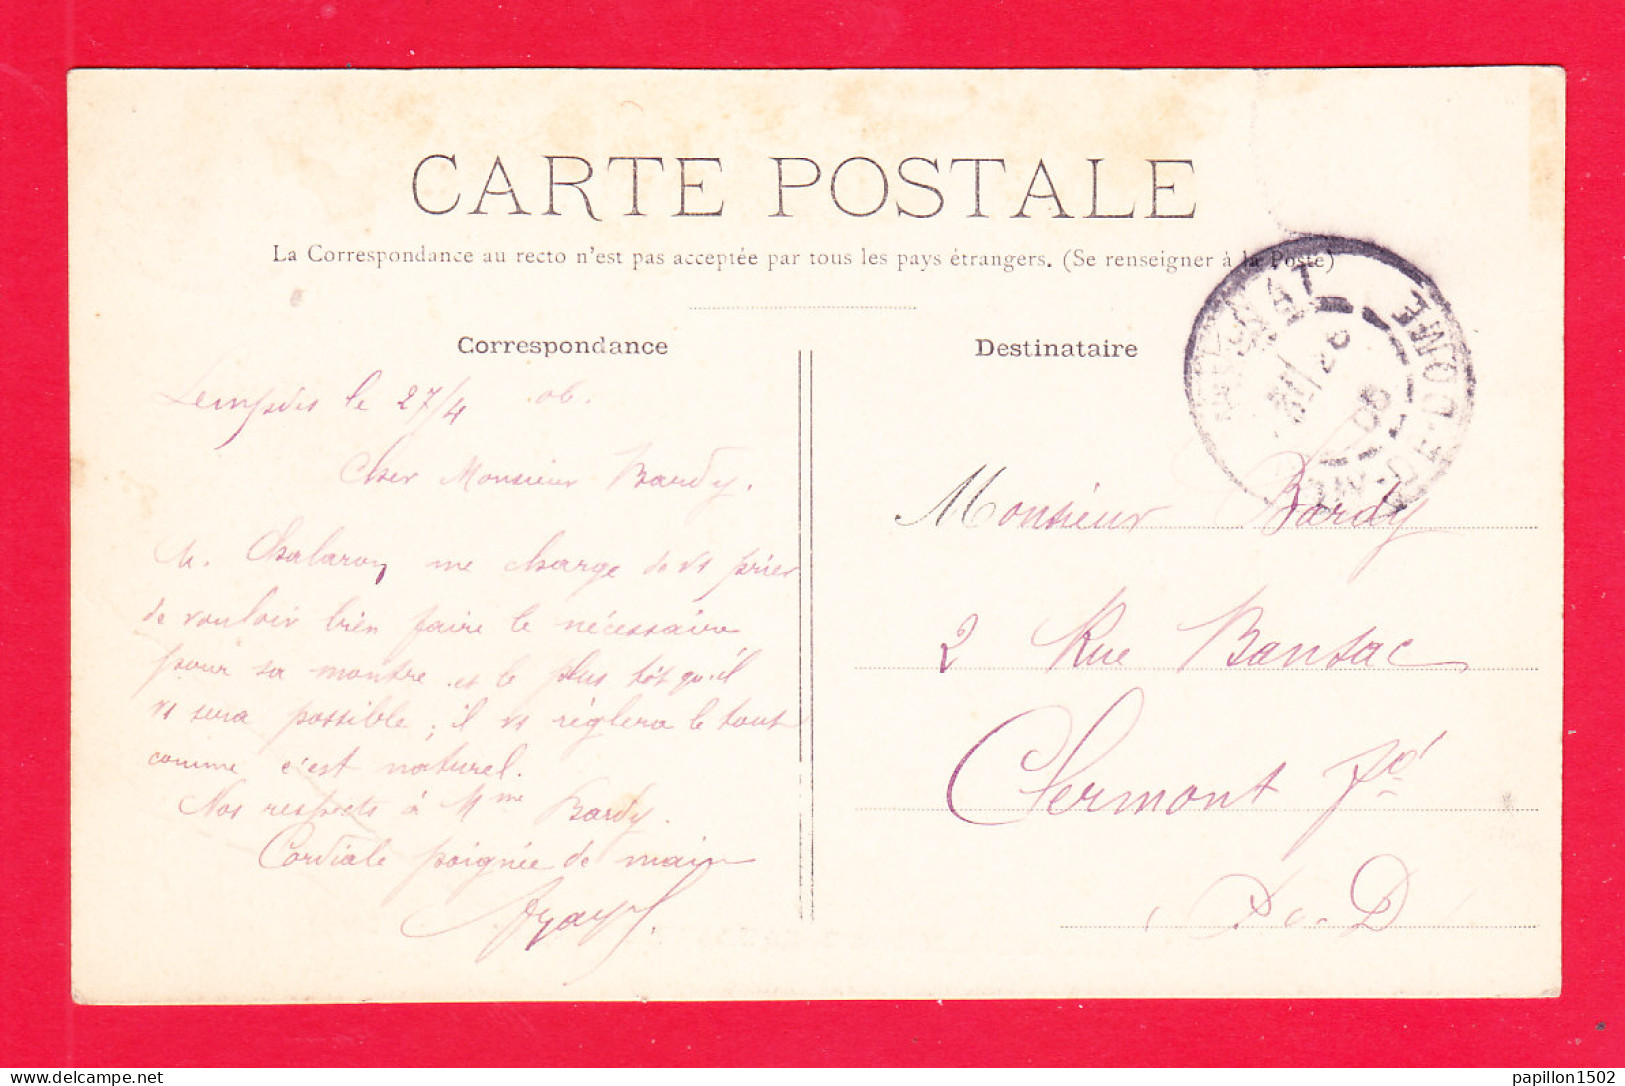 CARTE POSTALE
La Correspondance au recto n'est pas acceptée par tous les pays étrangers. (Se renseigner à la Poste)
Correspondance
Lempdes le 27/4 06.
Cher Monsieur Bardy.
M. Chalaron me charge de vs prier
de vouloir bien faire le nécessaire
pour sa montre et le plus tôt qu'il
vs sera possible; il vs règlera le tout
comme c'est naturel.
Nos respects à Mme Bardy.
Cordiale poignée de main
Destinataire
DE-DOME
Monsieur Bardy
2 Rue Bansac
Clermont Fd
P. de D
papillon1502